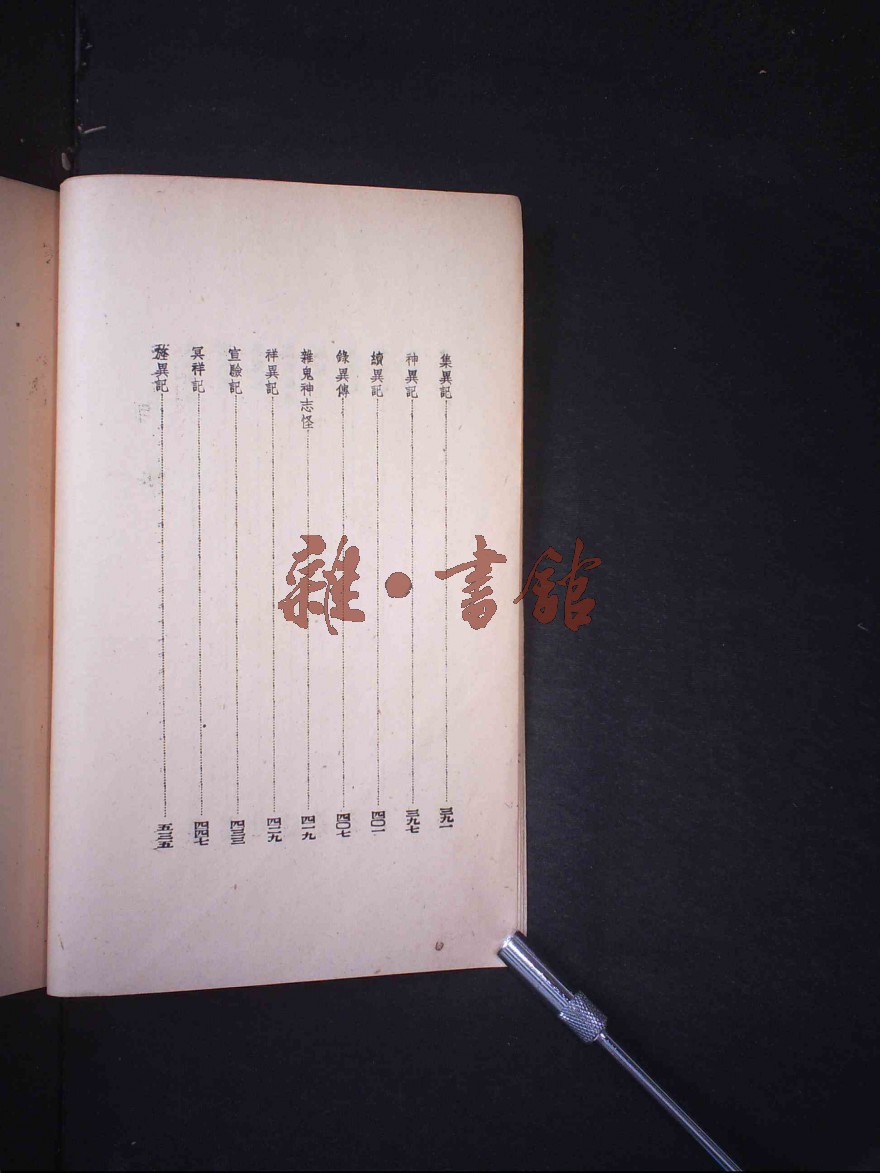 集異記 三九一
神異記 三九七
續異記 四〇一
錄異傳 四〇七
雜鬼神志怪 四一九
祥異記 四二九
宣驗記 四三三
冥祥記 四四七
旌異記 五三五
雜·書館